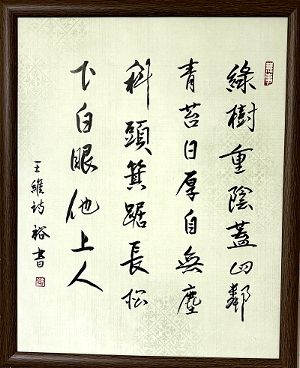 綠樹重陰蓋四鄰
青苔日厚自無塵
科頭箕踞長松
下白眼他上人
王維詩裕書